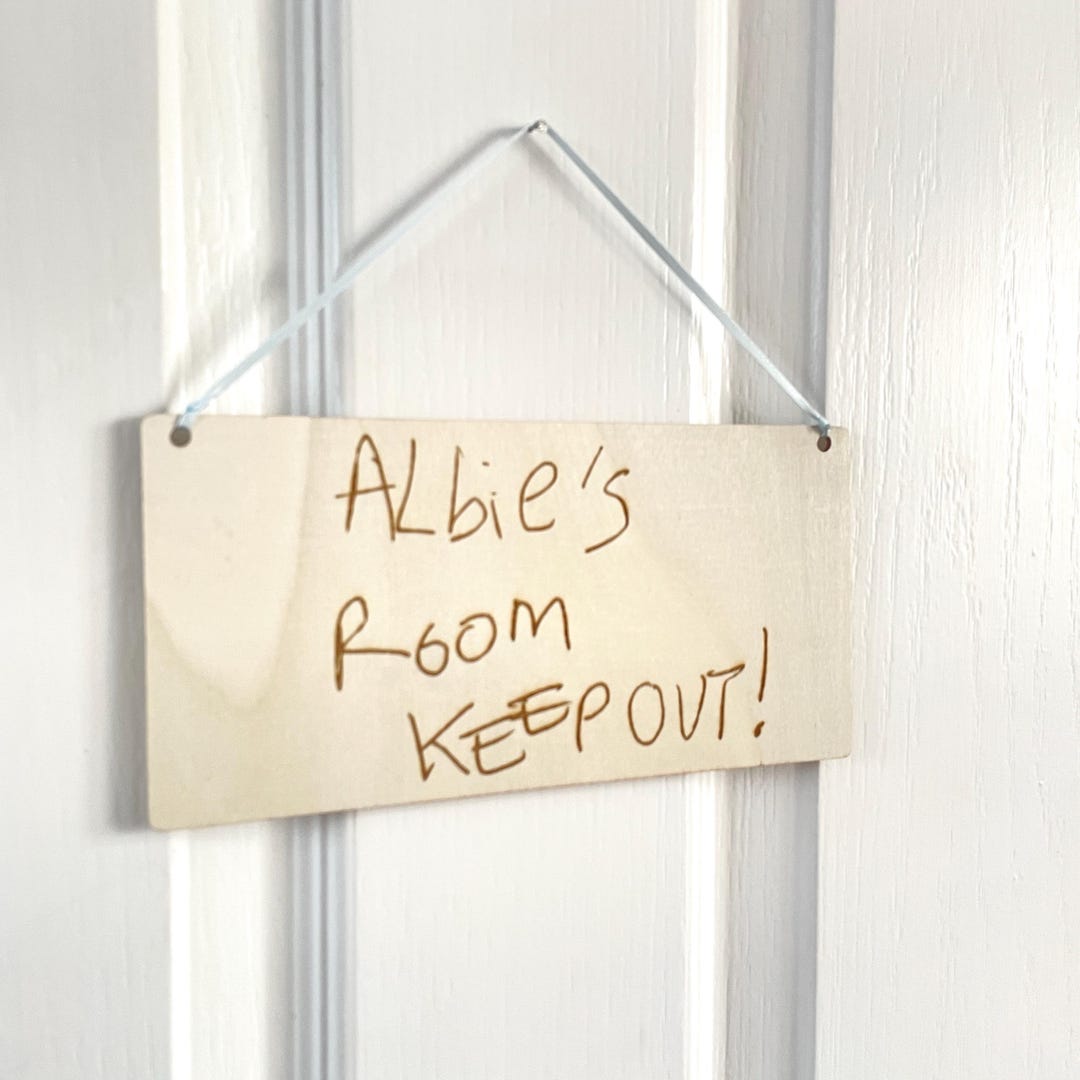 ALbie's
ROOM
KEEP OUT!